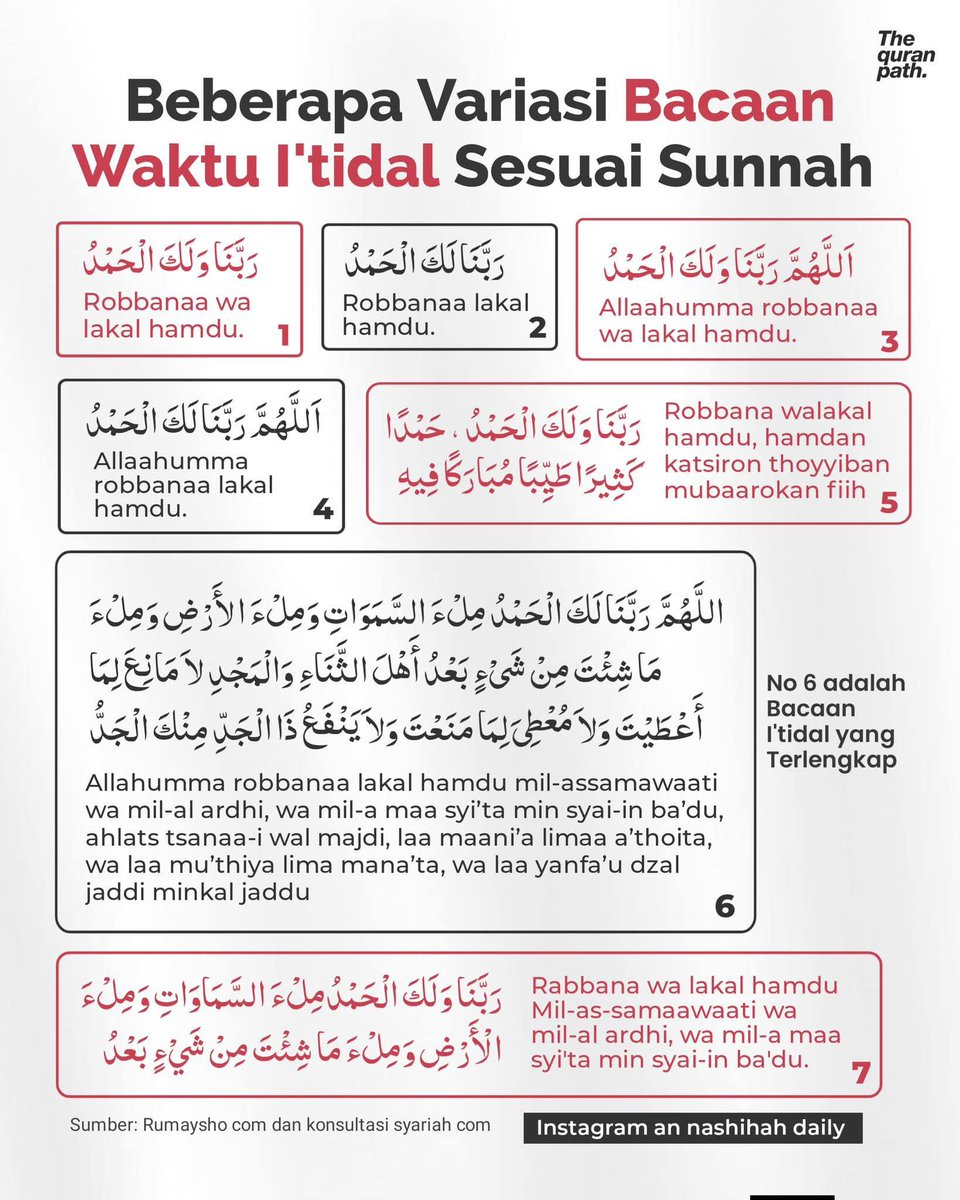 The
quran
path.
Beberapa Variasi Bacaan
Waktu I'tidal Sesuai Sunnah
رَبَّنَا وَلَكَ الْحَمْدُ
Robbanaa wa
lakal hamdu.
1
رَبَّنَا لَكَ الْحَمْدُ
Robbanaa lakal
hamdu.
2
اَللَّهُمَّ رَبَّنَا وَلَكَ الْحَمْدُ
Allaahumma robbanaa
wa lakal hamdu.
3
اَللَّهُمَّ رَبَّنَا لَكَ الْحَمْدُ
Allaahumma
robbanaa lakal
hamdu.
4
رَبَّنَا وَلَكَ الْحَمْدُ ، حَمْدًا
كَثِيرًا طَيِّبًا مُبَارَكًا فِيهِ
Robbana walakal
hamdu, hamdan
katsiron thoyyiban
mubaarokan fiih
5
اللَّهُمَّ رَبَّنَا لَكَ الْحَمْدُ مِلْءَ السَّمَوَاتِ وَمِلْءَ الأَرْضِ وَمِلْءَ
مَا شِئْتَ مِنْ شَىْءٍ بَعْدُ أَهْلَ الثَّنَاءِ وَالْمَجْدِ لاَ مَانِعَ لِمَا
أَعْطَيْتَ وَلاَ مُعْطِىَ لِمَا مَنَعْتَ وَلاَ يَنْفَعُ ذَا الْجَدِّ مِنْكَ الْجَدُّ
Allahumma robbanaa lakal hamdu mil-assamawaati
wa mil-al ardhi, wa mil-a maa syi’ta min syai-in ba’du,
ahlats tsanaa-i wal majdi, laa maani’a limaa a’thoita,
wa laa mu’thiya lima mana’ta, wa laa yanfa’u dzal
jaddi minkal jaddu
6
No 6 adalah
Bacaan
I'tidal yang
Terlengkap
رَبَّنَا وَلَكَ الْحَمْدُ مِلْءَ السَّمَاوَاتِ وَمِلْءَ
الْأَرْضِ وَمِلْءَ مَا شِئْتَ مِنْ شَيْءٍ بَعْدُ
Rabbana wa lakal hamdu
Mil-as-samaawaati wa
mil-al ardhi, wa mil-a maa
syi'ta min syai-in ba'du.
7
Sumber: Rumaysho com dan konsultasi syariah com
Instagram an nashihah daily